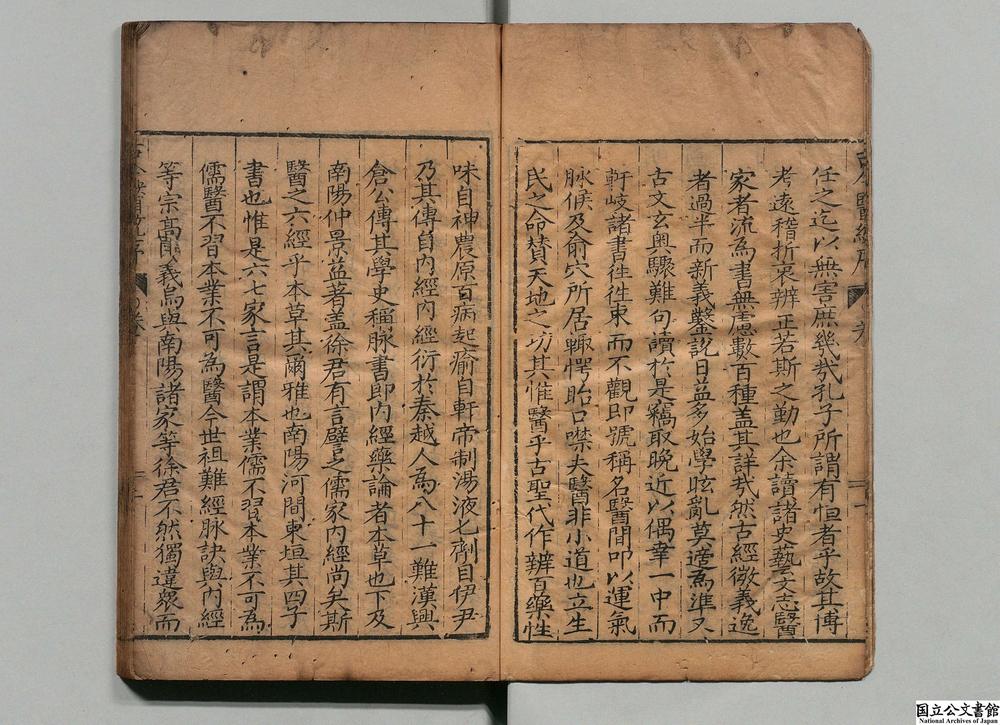 任之迄以無害庶幾哉孔子所謂有恒者乎故其博
考遠稽折衷辨正若斯之勤也余讀諸史藝文志醫
家者流為書無慮數百種盖其詳哉然古經微義逸
者過半而新義鑿說日益多始學眩亂莫適為準又
古文玄奥驟難句讀於是竊取晚近以偶幸一中而
軒岐諸書徃徃束而不觀即號稱名醫間叩以運氣
脉候及俞穴所居輙愕眙口噤夫醫非小道也立生
民之命賛天地之功其惟醫乎古聖代作辨百藥性
味自神農原百病起瘉自軒帝制湯液七劑自伊尹
乃其傳自内經内經衍於秦越人為八十一難漢興
倉公傳其學史稱脉書即内經藥論者本草也下及
南陽仲景益著盖徐君有言譬之儒家内經尚矣斯
醫之六經乎本草其爾雅也南陽河間東垣其四子
書也惟是六七家言是謂本業儒不習本業不可為
儒醫不習本業不可為醫今世祖難經脉訣與内經
等宗髙義烏與南陽諸家等徐君不然獨違衆而
国立公文書館
National Archives of Japan